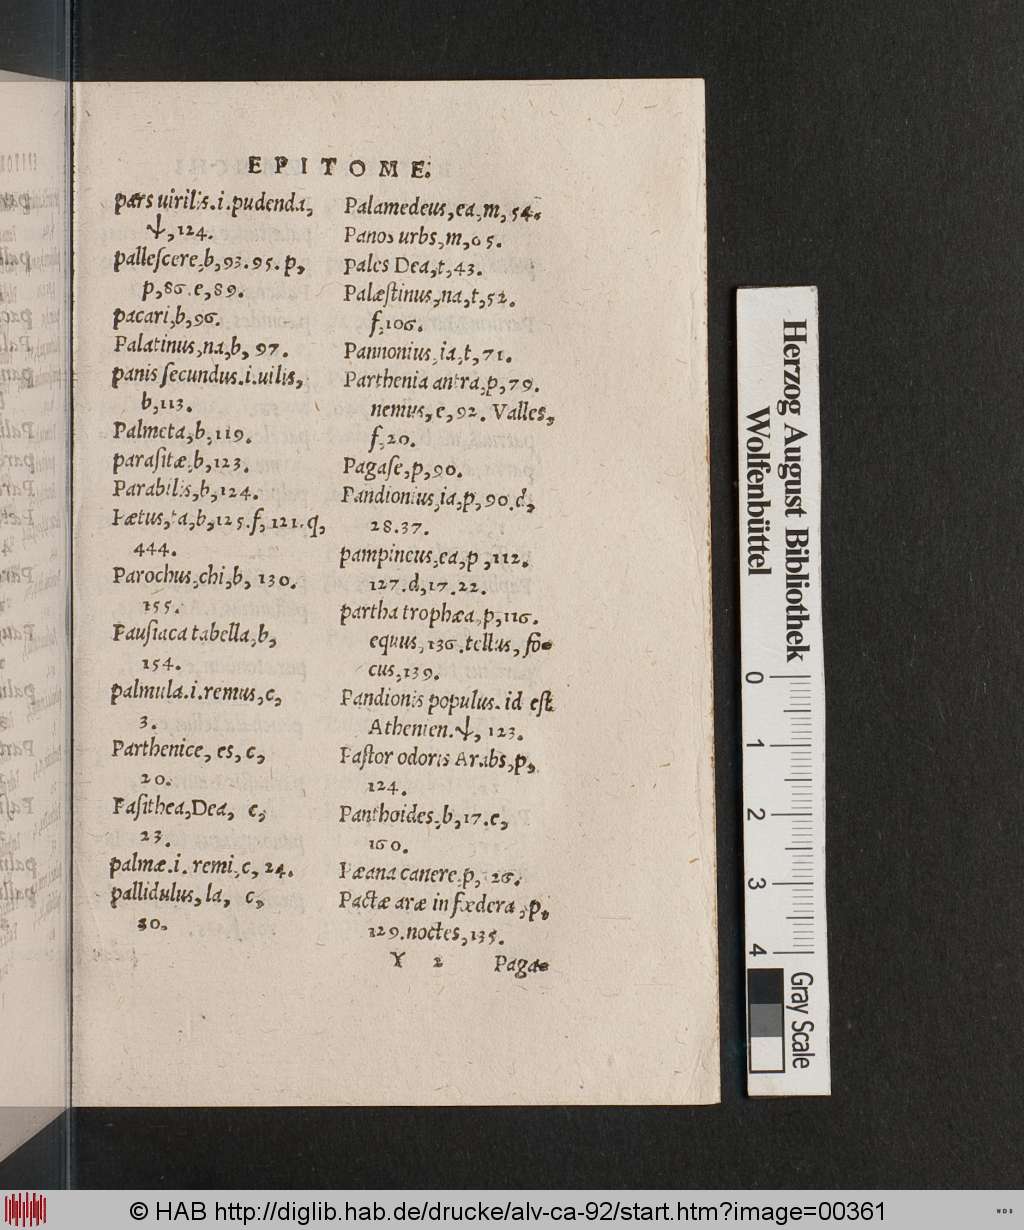 EPITOME.
pars uirilis.i.pudenda,
ψ,124.
pallescere,b,93.95.p,
p,86.e,89.
pacari,b,96.
Palatinus,na,b, 97.
panis secundus.i.uilis,
b,113.
Palmeta,b,119.
parasitæ,b,123.
Parabilis,b,124.
Pætus,ta,b,125.f,121.q,
444.
Parochus,chi,b, 130.
155.
Pausiaca tabella,b,
154.
palmula.i.remus,c,
3.
Parthenice, es, c,
20.
Pasithea,Dea, c,
23.
palmæ.i. remi,c, 24.
pallidulus, la, c,
30.
Palamedeus,ea,m, 54.
Panos urbs,m,65.
pales Dea,t,43.
Palæstinus,na,t,52.
f,106.
Pannonius,ia,t,71.
Parthenia antra,p,79.
nemus, e,92. Valles,
f,20.
Pagase,p,90.
Pandionius,ia,p,90.d,
28.37.
pampineus,ea,p ,112.
127.d,17.22.
partha trophæa,p,116.
equus,136.tellus, fo-
cus,139.
Pandionis populus. id est
Athenien.ψ, 123.
Pastor odoris Arabs,p,
124.
Panthoides,b,17.e,
160.
Pæana canere,p, 26.
Pactæ aræ in fœdera ,p,
129.noctes,135.
Y 2 Paga-
Herzog August Bibliothek
Wolfenbüttel
0 1 2 3 4
Gray Scale
© HAB http://diglib.hab.de/drucke/alv-ca-92/start.htm?image=00361